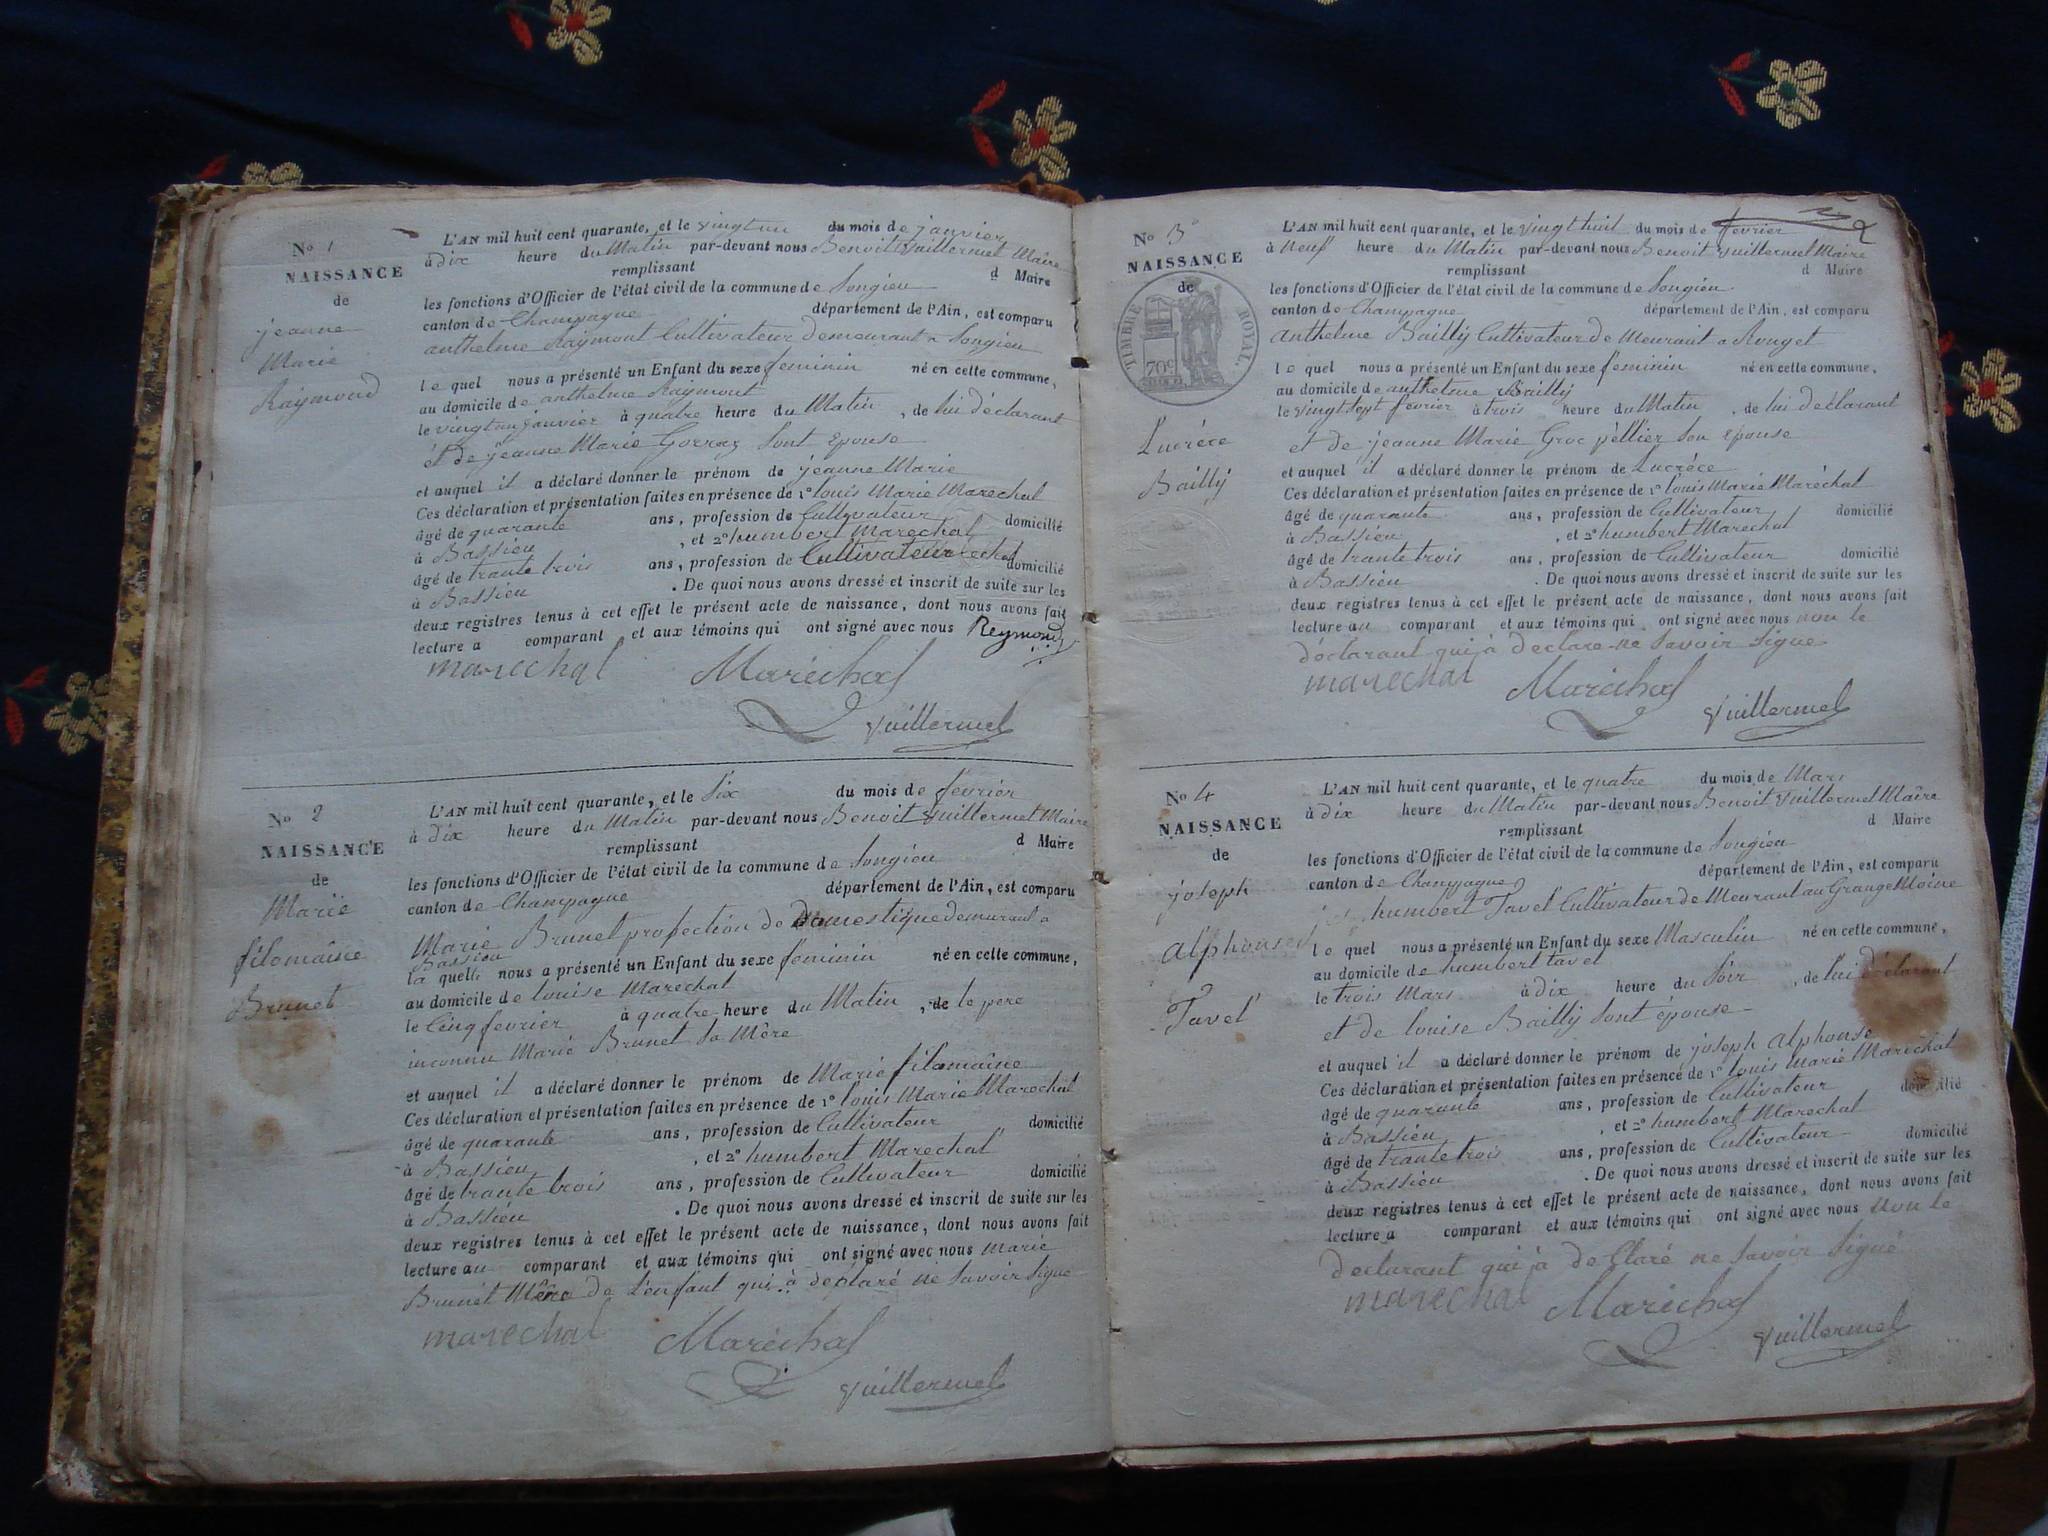 No 1
NAISSANCE
de
jeanne
Marie
Raymond
L'AN mil huit cent quarante, et le vingtun du mois de janvier
à dix heure du Matin par-devant nous Benoit Vuillermet Maire
remplissant d Maire
les fonctions d'Officier de l'état civil de la commune de Songieu
canton de Champagne département de l'Ain, est comparu
anthelme Raymont Cultivateur Demeurant a Songieu
le quel nous a présenté un Enfant du sexe feminin né en cette commune,
au domicile de anthelme Raymont
le vingtun janvier à quatre heure du Matin, de lui déclarant
et de jeanne Marie Gorraz Sont Epouse
et auquel il a déclaré donner le prénom de jeanne Marie
Ces déclaration et présentation faites en présence de 1º louis Marie Marechal
âgé de quarante ans, profession de Cultyvateur domicilié
à Bassieu, et 2º humbert Marechal
âgé de trante trois ans, profession de Cultivateur domicilié
à Bassieu. De quoi nous avons dressé et inscrit de suite sur les
deux registres tenus à cet effet le présent acte de naissance, dont nous avons fait
lecture a comparant et aux témoins qui ont signé avec nous Reymond
marechal Maréchal
Vuillermet
No 2
NAISSANCE
de
Marie
filomaine
Brunet
L'AN mil huit cent quarante, et le Six du mois de fevrier
à dix heure du Matin par-devant nous Benoit Vuillermet Maire
remplissant d Maire
les fonctions d'Officier de l'état civil de la commune de Songieu
canton de Champagne département de l'Ain, est comparu
Marie Brunet profection de Domestique demeurant a
Bassieu
la quelle nous a présenté un Enfant du sexe feminin né en cette commune,
au domicile de louise Marechal
le Cinq fevrier à quatre heure du Matin, de le pere
inconnu Marie Brunet Sa Mère
et auquel il a déclaré donner le prénom de Marie filomaine
Ces déclaration et présentation faites en présence de 1º louis Marie Marechal
âgé de quarante ans, profession de Cultivateur domicilié
à Bassieu, et 2º humbert Marechal
âgé de trante trois ans, profession de Cultivateur domicilié
à Bassieu. De quoi nous avons dressé et inscrit de suite sur les
deux registres tenus à cet effet le présent acte de naissance, dont nous avons fait
lecture au comparant et aux témoins qui ont signé avec nous Marie
Brunet Mère de L'enfant qui à déclaré ne Savoir Signe
marechal Maréchal
Vuillermet
2
No 3
NAISSANCE
de
TIMBRE ROYAL
70c
Lucréce
Bailly
L'AN mil huit cent quarante, et le vingt huit du mois de fevrier
à Neuf heure du Matin par-devant nous Benoit Vuillermet Maire
remplissant d Maire
les fonctions d'Officier de l'état civil de la commune de Songieu
canton de Champagne département de l'Ain, est comparu
anthelme Bailly Cultivateur de Meurant a Rouget
le quel nous a présenté un Enfant du sexe feminin né en cette commune,
au domicile de anthelme Bailly
le vingt Sept fevrier à trois heure du Matin, de lui déclarant
et de jeanne Marie Groc pellier Son Epouse
et auquel il a déclaré donner le prénom de Lucréce
Ces déclaration et présentation faites en présence de 1º louis Marie Maréchal
âgé de quarante ans, profession de Cultivateur domicilié
à Bassieu, et 2º humbert Marechal
âgé de trante trois ans, profession de Cultivateur domicilié
à Bassieu. De quoi nous avons dressé et inscrit de suite sur les
deux registres tenus à cet effet le présent acte de naissance, dont nous avons fait
lecture au comparant et aux témoins qui ont signé avec nous non le
déclarant qui à declare ne Savoir Signe
marechal Maréchal
Vuillermet
No 4
NAISSANCE
de
joseph
alphonse
Tavel
L'AN mil huit cent quarante, et le quatre du mois de Mars
à dix heure du Matin par-devant nous Benoit Vuillermet Maire
remplissant d Maire
les fonctions d'Officier de l'état civil de la commune de Songieu
canton de Champagne département de l'Ain, est comparu
humbert Tavel Cultivateur de Meurant au Grange Moine
le quel nous a présenté un Enfant du sexe Masculin né en cette commune,
au domicile de humbert tavel
le trois Mars à dix heure du Soir, de lui déclarant
et de louise Bailly Sont épouse
et auquel il a déclaré donner le prénom de joseph alphonse
Ces déclaration et présentation faites en présence de 1º louis Marie Maréchal
âgé de quarante ans, profession de Cultivateur domicilié
à Bassieu, et 2º humbert Marechal
âgé de trante trois ans, profession de Cultivateur domicilié
à Bassieu. De quoi nous avons dressé et inscrit de suite sur les
deux registres tenus à cet effet le présent acte de naissance, dont nous avons fait
lecture a comparant et aux témoins qui ont signé avec nous non le
declarant qui à de Claré ne Savoir Signé
marechal Maréchal
Vuillermet